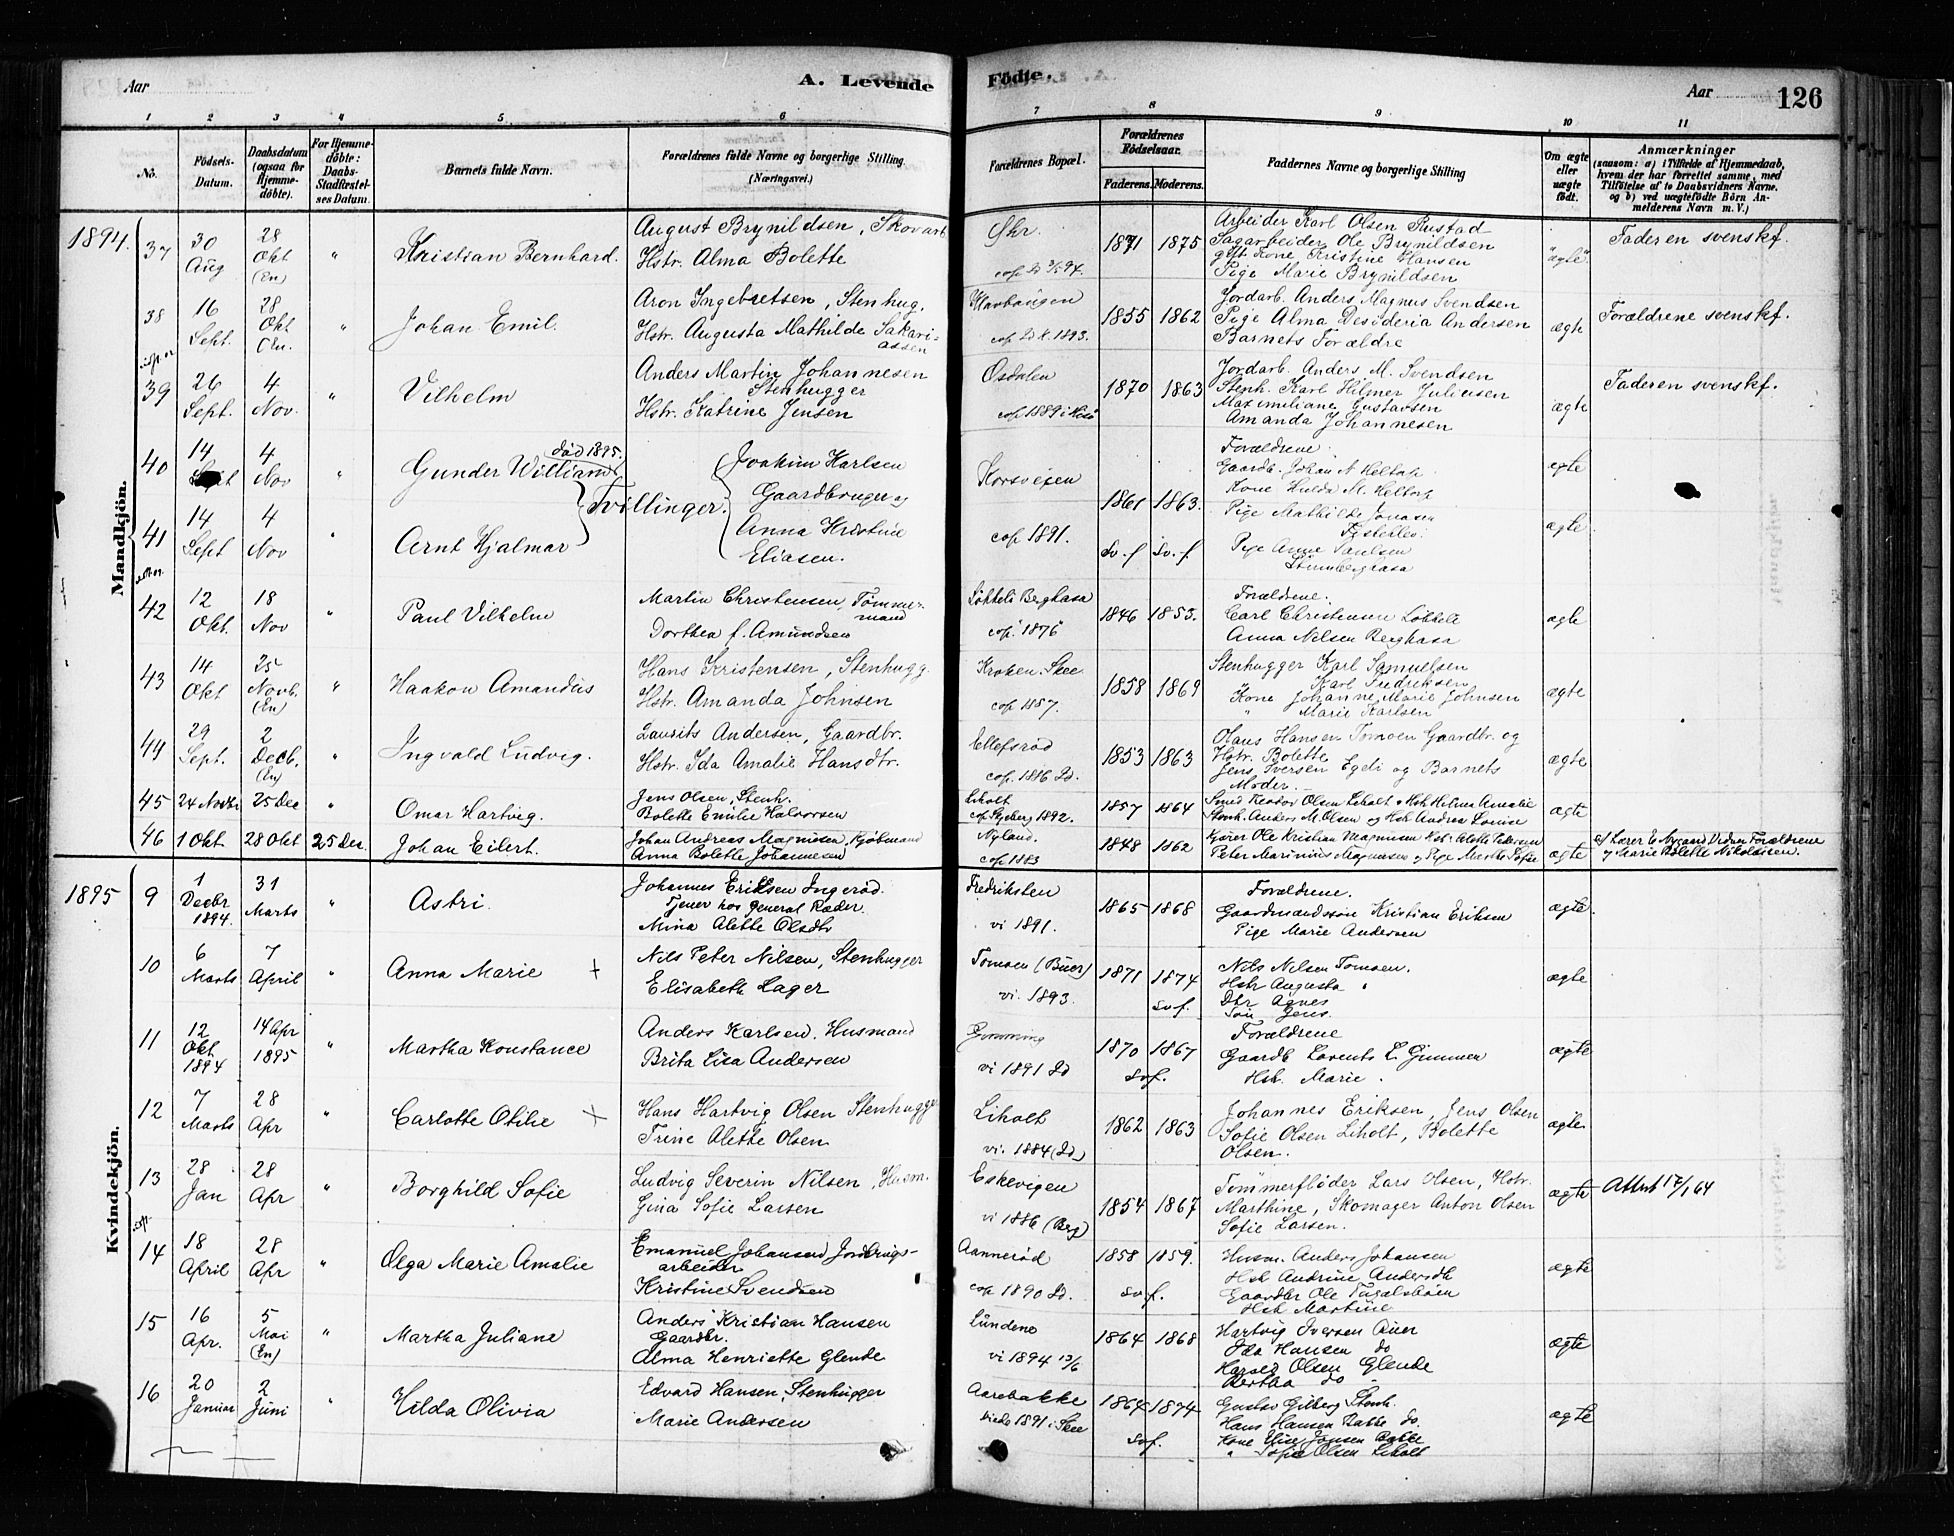 Aar
A. Levende
Födte.
Aar
126
1 2 3 4 5 6 7 8 9 10 11
No.
Födsels-Datum.
Daabsdatum (ogsaa for Hjemme-döbte).
For Hjemme-döbte: Daabs-Stadfæstel-ses Datum.
Barnets fulde Navn.
Forældrenes fulde Navne og borgerlige Stilling. (Næringsvei.)
Forældrenes Bopæl.
Forældrenes Födselsaar.
Faderens. Moderens.
Faddernes Navne og borgerlige Stilling
Om ægte eller uægte födt.
Anmærkninger
(saasom: a) i Tilfælde af Hjemmedaab, hvem der har forrettet samme, med Tilföielse af to Daabsvidners Navne. og b) ved uægtefödte Börn Anmelderens Navn m. V.)
Mandkjön.
1894.
37 30 Aug 28 Okt (En) " Kristian Bernhard. August Brynildsen, Skovarb. Hstr. Alma Bolette
1871 1875 Arbeider Karl Olsen Rustad
Sagarbeider Ole Brynildsen
gift Kone Kristine Hansen
Pige Marie Brynildsen
"ægte" Faderen svensk f.
38 16 Sept. 28 Okt En. " Johan Emil. Aron Ingebretsen, Stenhug. Hstr. Augusta Mathilde Sakariassen
cop. Id k. 1893. 1855 1862 Jordarb. Anders Magnus Svendsen
Pige Alma Desideria Andersen
Barnets Forældre
ægte Forældrene svensk f.
39 26 Sept. 4 Nov. " Vilhelm Anders Martin Johannesen Stenhugger
Hstr. Katrine Jensen
Osdalen
cop 1889 i 1870 1863 Jordarb. Anders M. Svendsen
Stenh. Karl Hilmer Juliusen
Maximiliane Gustavsen
Amanda Johannesen
ægte Faderen svensk f.
40 14 Sept 4 Nov " Gunder William død 1895.
41 14 Sept 4 Nov " Arnt Hjalmar
Tvillinger.
Joakim Karlsen
Gaardbruger og
Anna Kristine
Eliasen.
Korsvejen
cop 1891.
1861 1863.
Sv. f Sv. f.
Forældrene.
Gaardb. Johan N
Kone Hulda M.
Pige Mathilde Jonasen
Pige Anne Paulsen
ægte
ægte
42 12 Okt. 18 Nov " Paul Vilhelm Martin Christensen, Tømmermand
Dorthea f. Amundsen
Løkkeli Berghasa
cop. 1876 1846 1853. Forældrene.
Carl Christensen Løkkeli
Anna Nilsen Berghasa
ægte
43 14 Okt 25 Novb. (En) " Haakon Amandus Hans Kristensen, Stenhugg.
Hstr. Amanda Johnsen
Kroken. Skee
1858 1869 Stenhugger Karl Samuelsen
Karl Fredriksen
Kone Johanne Marie Johnsen
" Marie Karlsen
ægte
44 29 Sept. 2 Decb. (En) " Ingvald Ludvig. Laurits Andersen, Gaardbr.
Hstr. Ida Amalie Hansdtr.
Ellefsrød
cop. 1886 Id. 1853 1863 Olaus Hansen Tomoen Gaardbr. og
Hstr. Bolette
Jens Iversen Egeli og Barnets
Moder.
ægte
45 25 Dec " Omar Hartvig. Jens Olsen, Stenh.
Bolette Emilie Halvorsen
Liholt
1892. 1857 1864 Smed Teodor Olsen Liholt & Hstr Helma Amalie
Stenh. Anders M. Olsen og Hstr Andrea Louise
ægte
46 1 Okt 28 Okt 25 Dec. Johan Eilert. Johan Andreas Magnusen, Kjøbmand
Anna Bolette Johannesen
Nyland.
cop. 1883 1848 1862 Ole Kristian Magnusen Hstr. Alette Pedersen
Peter Marinius Magnusen og Pige Marthe Sofie
ægte af Lærer E. Nygaard Vidn Forældrene
og Marie Bolette Nikolaisen.
Kvindekjön.
1895
9 1 Decbr 1894. 31 Marts " Astri. Johannes Eriksen Ingerød.
Tjener hos General Ræder.
Mina Alette Olsdtr
Fredriksten
vi 1891. 1865 1868 Forældrene.
Gaardmandssøn Kristian Eriksen
Pige Marie Andersen
ægte.
10 6 Marts 7 April " Anna Marie + Nils Peter Nilsen, Stenhugger
Elisabeth Lager
Tomoen (Buer)
vi. 1893. 1871 1874 sv f. Nils Nilsen Tomoen.
Hstr Augusta "
Dtr Agnes
Søn Jens.
ægte
11 12 Okt 1894 14 Apr 1895 " Martha Konstance Anders Karlsen, Husmand
Brita Lisa Andersen
vi 1891 Id 1870 1867 sv f. Forældrene
Gaardb Lorents L. Gimmen
Hstr. Marie.
ægte
12 7 Marts 28 Apr " Carlotte Otilie + Hans Hartvig Olsen Stenhugger
Trine Alette Olsen
Liholt
vi. 1884 (Id) 1862 1863 Johannes Eriksen, Jens Olsen
Sofie Olsen Liholt, Bolette
Olsen.
ægte
13 28 Jan 28 Apr " Borghild Sofie Ludvig Severin Nilsen, Husm.
Gina Sofie Larsen
Eskevigen
vi 1886 (Berg) 1854 1867 Tømmerfløder Lars Olsen, Hstr.
Marthine, Skomager Anton Olsen
Sofie Larsen.
ægte Attest 17/1 64
14 18 April 28 Apr " Olga Marie Amalie Emanuel Johansen Jordbrugsarbeider
Kristine Svendsen
Aannerød
cop 1890 Id. 1858 1859. sv f. Husm. Anders Johansen
Hstr Andrine Andersdtr
Gaardbr Ole
Hstr Martine
ægte
15 16 Apr. 5 Mai (En) " Martha Juliane Anders Kristian Hansen
Gaardbr.
Alma Henriette Glende
Lundene
vi 1894 13/6 1864 1868 Hartvig Iversen Buer
Ida Hansen do
Harald Olsen Glende
Bertha do
ægte
16 20 Januar 2 Juni " Hilda Olivia Edvard Hansen, Stenhugger
Marie Andersen
Aarebakke
viede 1891 i Skee 1864 1874 sv f. Gustav Gilberg Stenh.
Hans Hansen Bakke do.
Kone Elise Jonsen Bakke
" Sofie Olsen Liholt
ægte